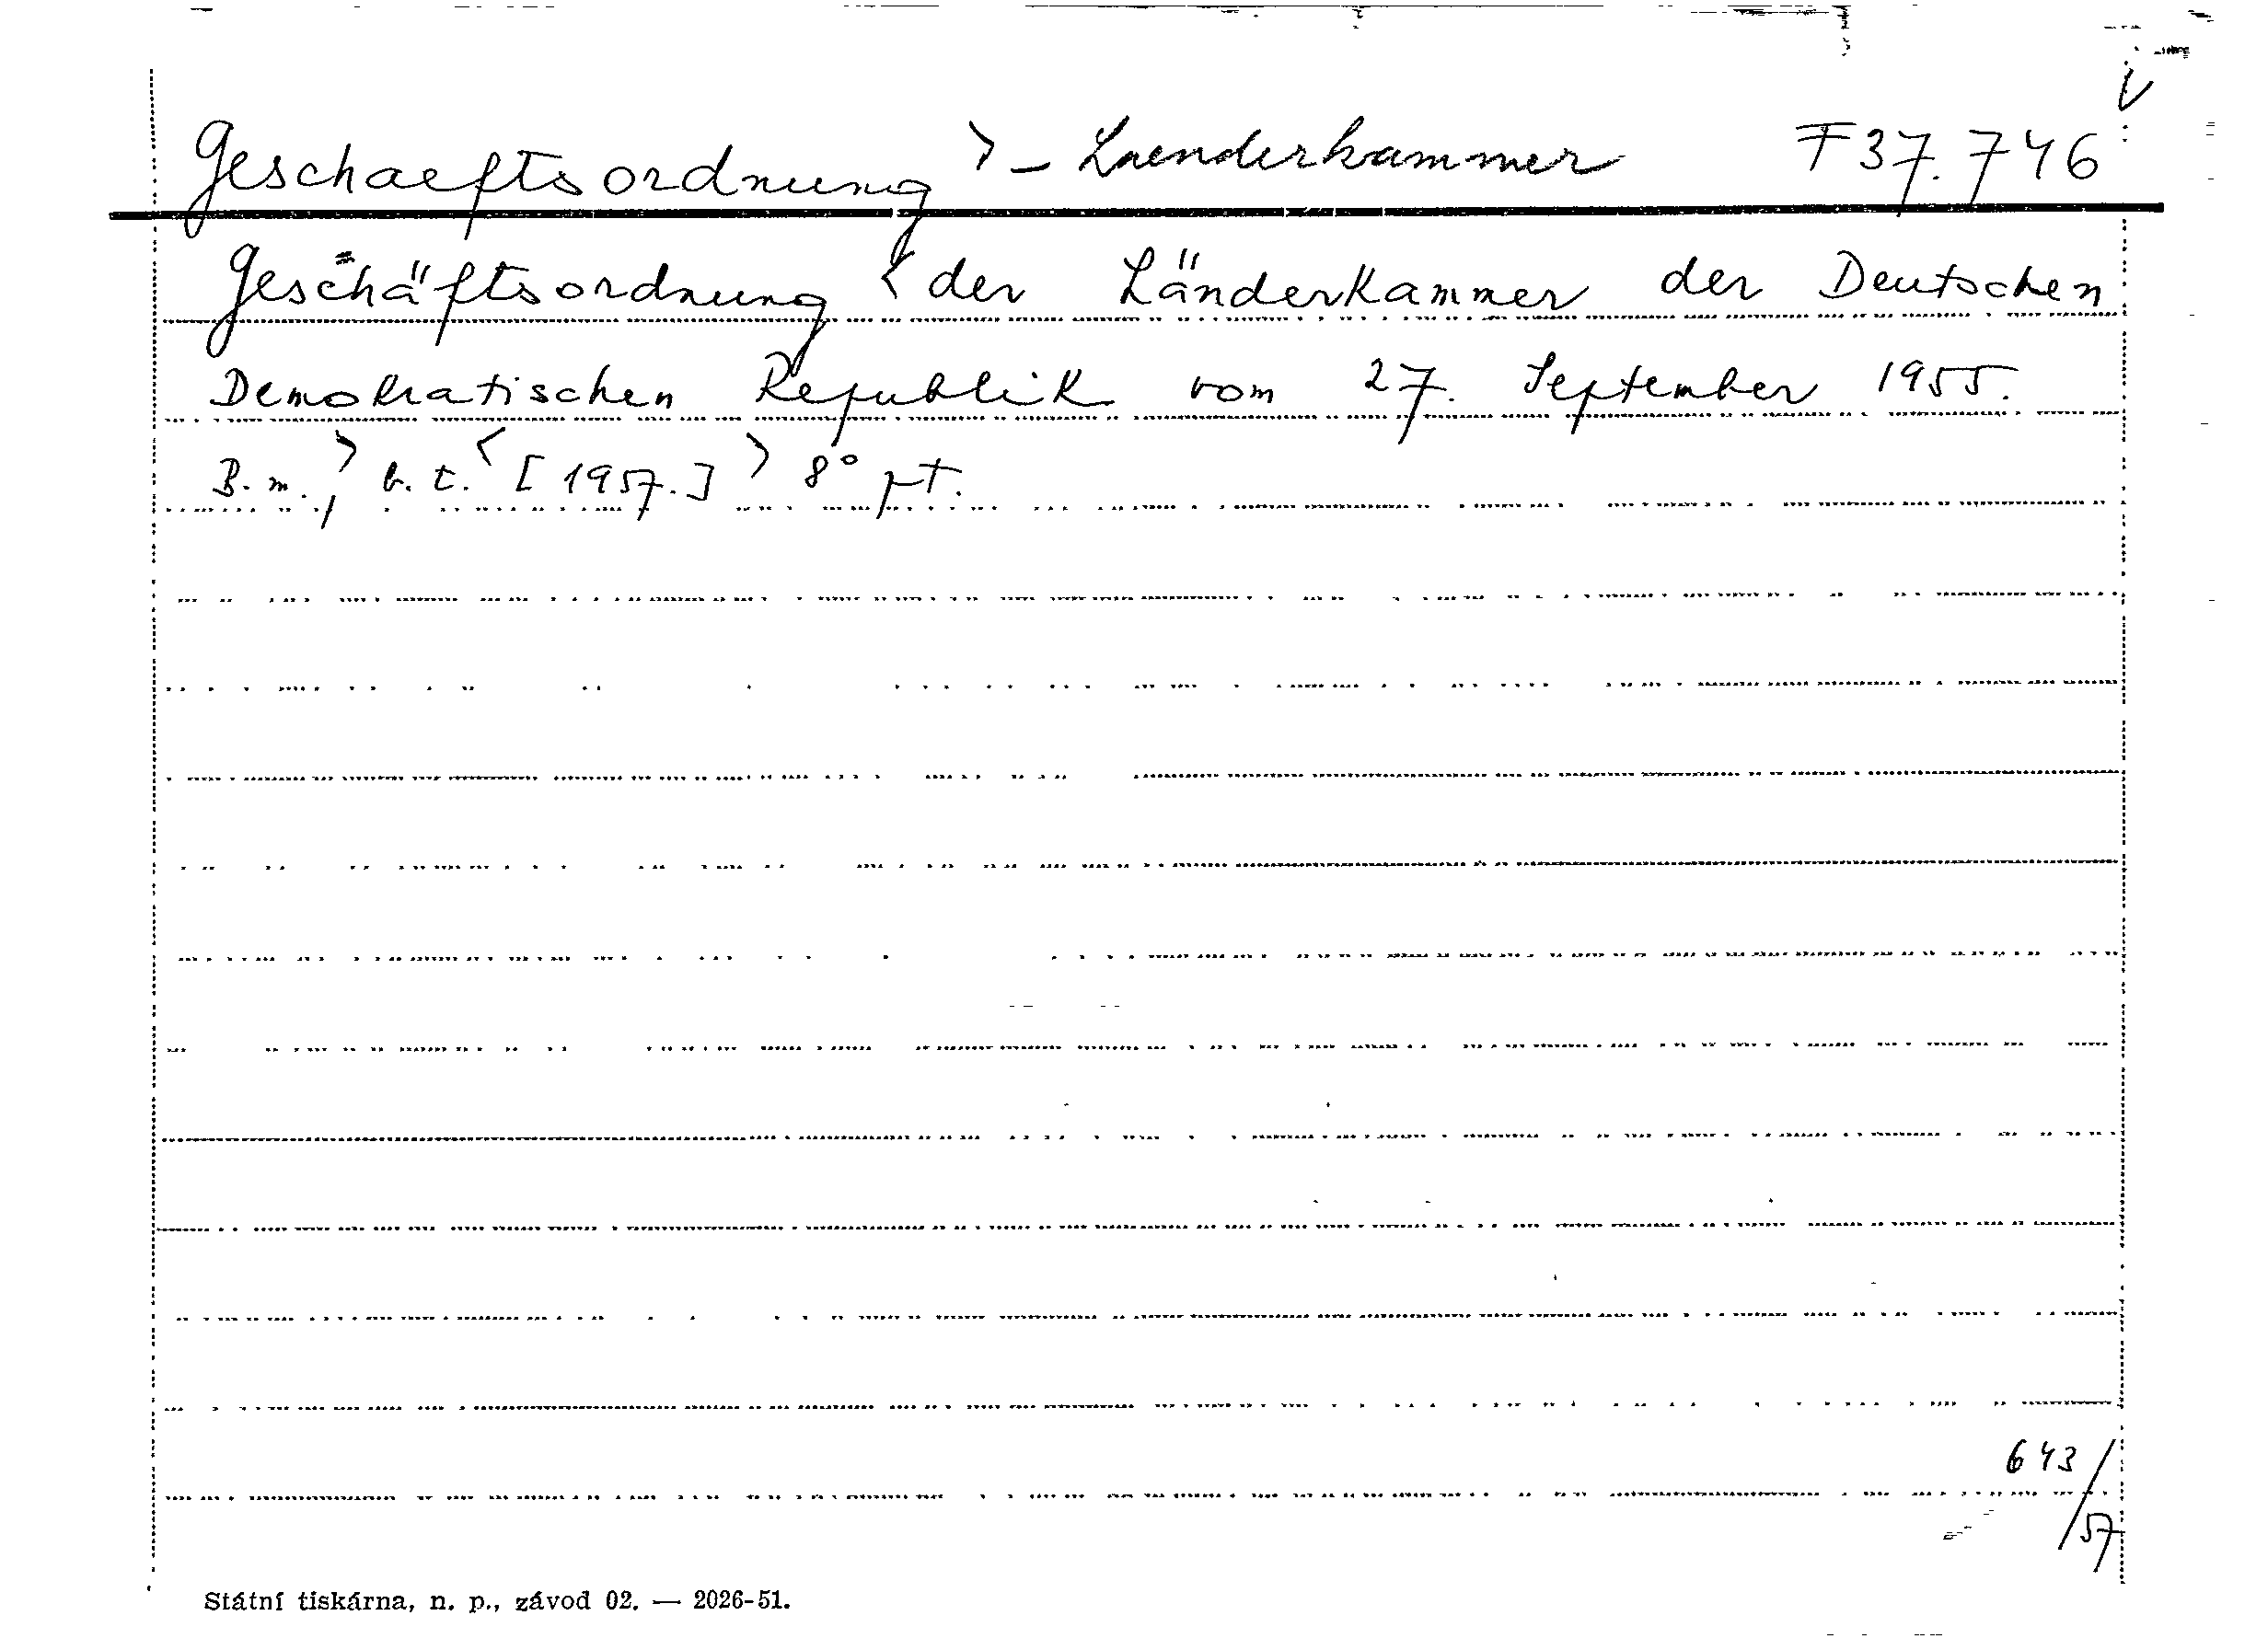 Geschaeftsordnung > - Laenderkammer F 37.746
Geschäftsordnung < der Länderkammer der Deutschen
Demokratischen Republik vom 27. September 1955.
B. m., > b. t. < [1957.] > 8° pt.
643/57
Státní tiskárna, n. p., závod 02. — 2026-51.